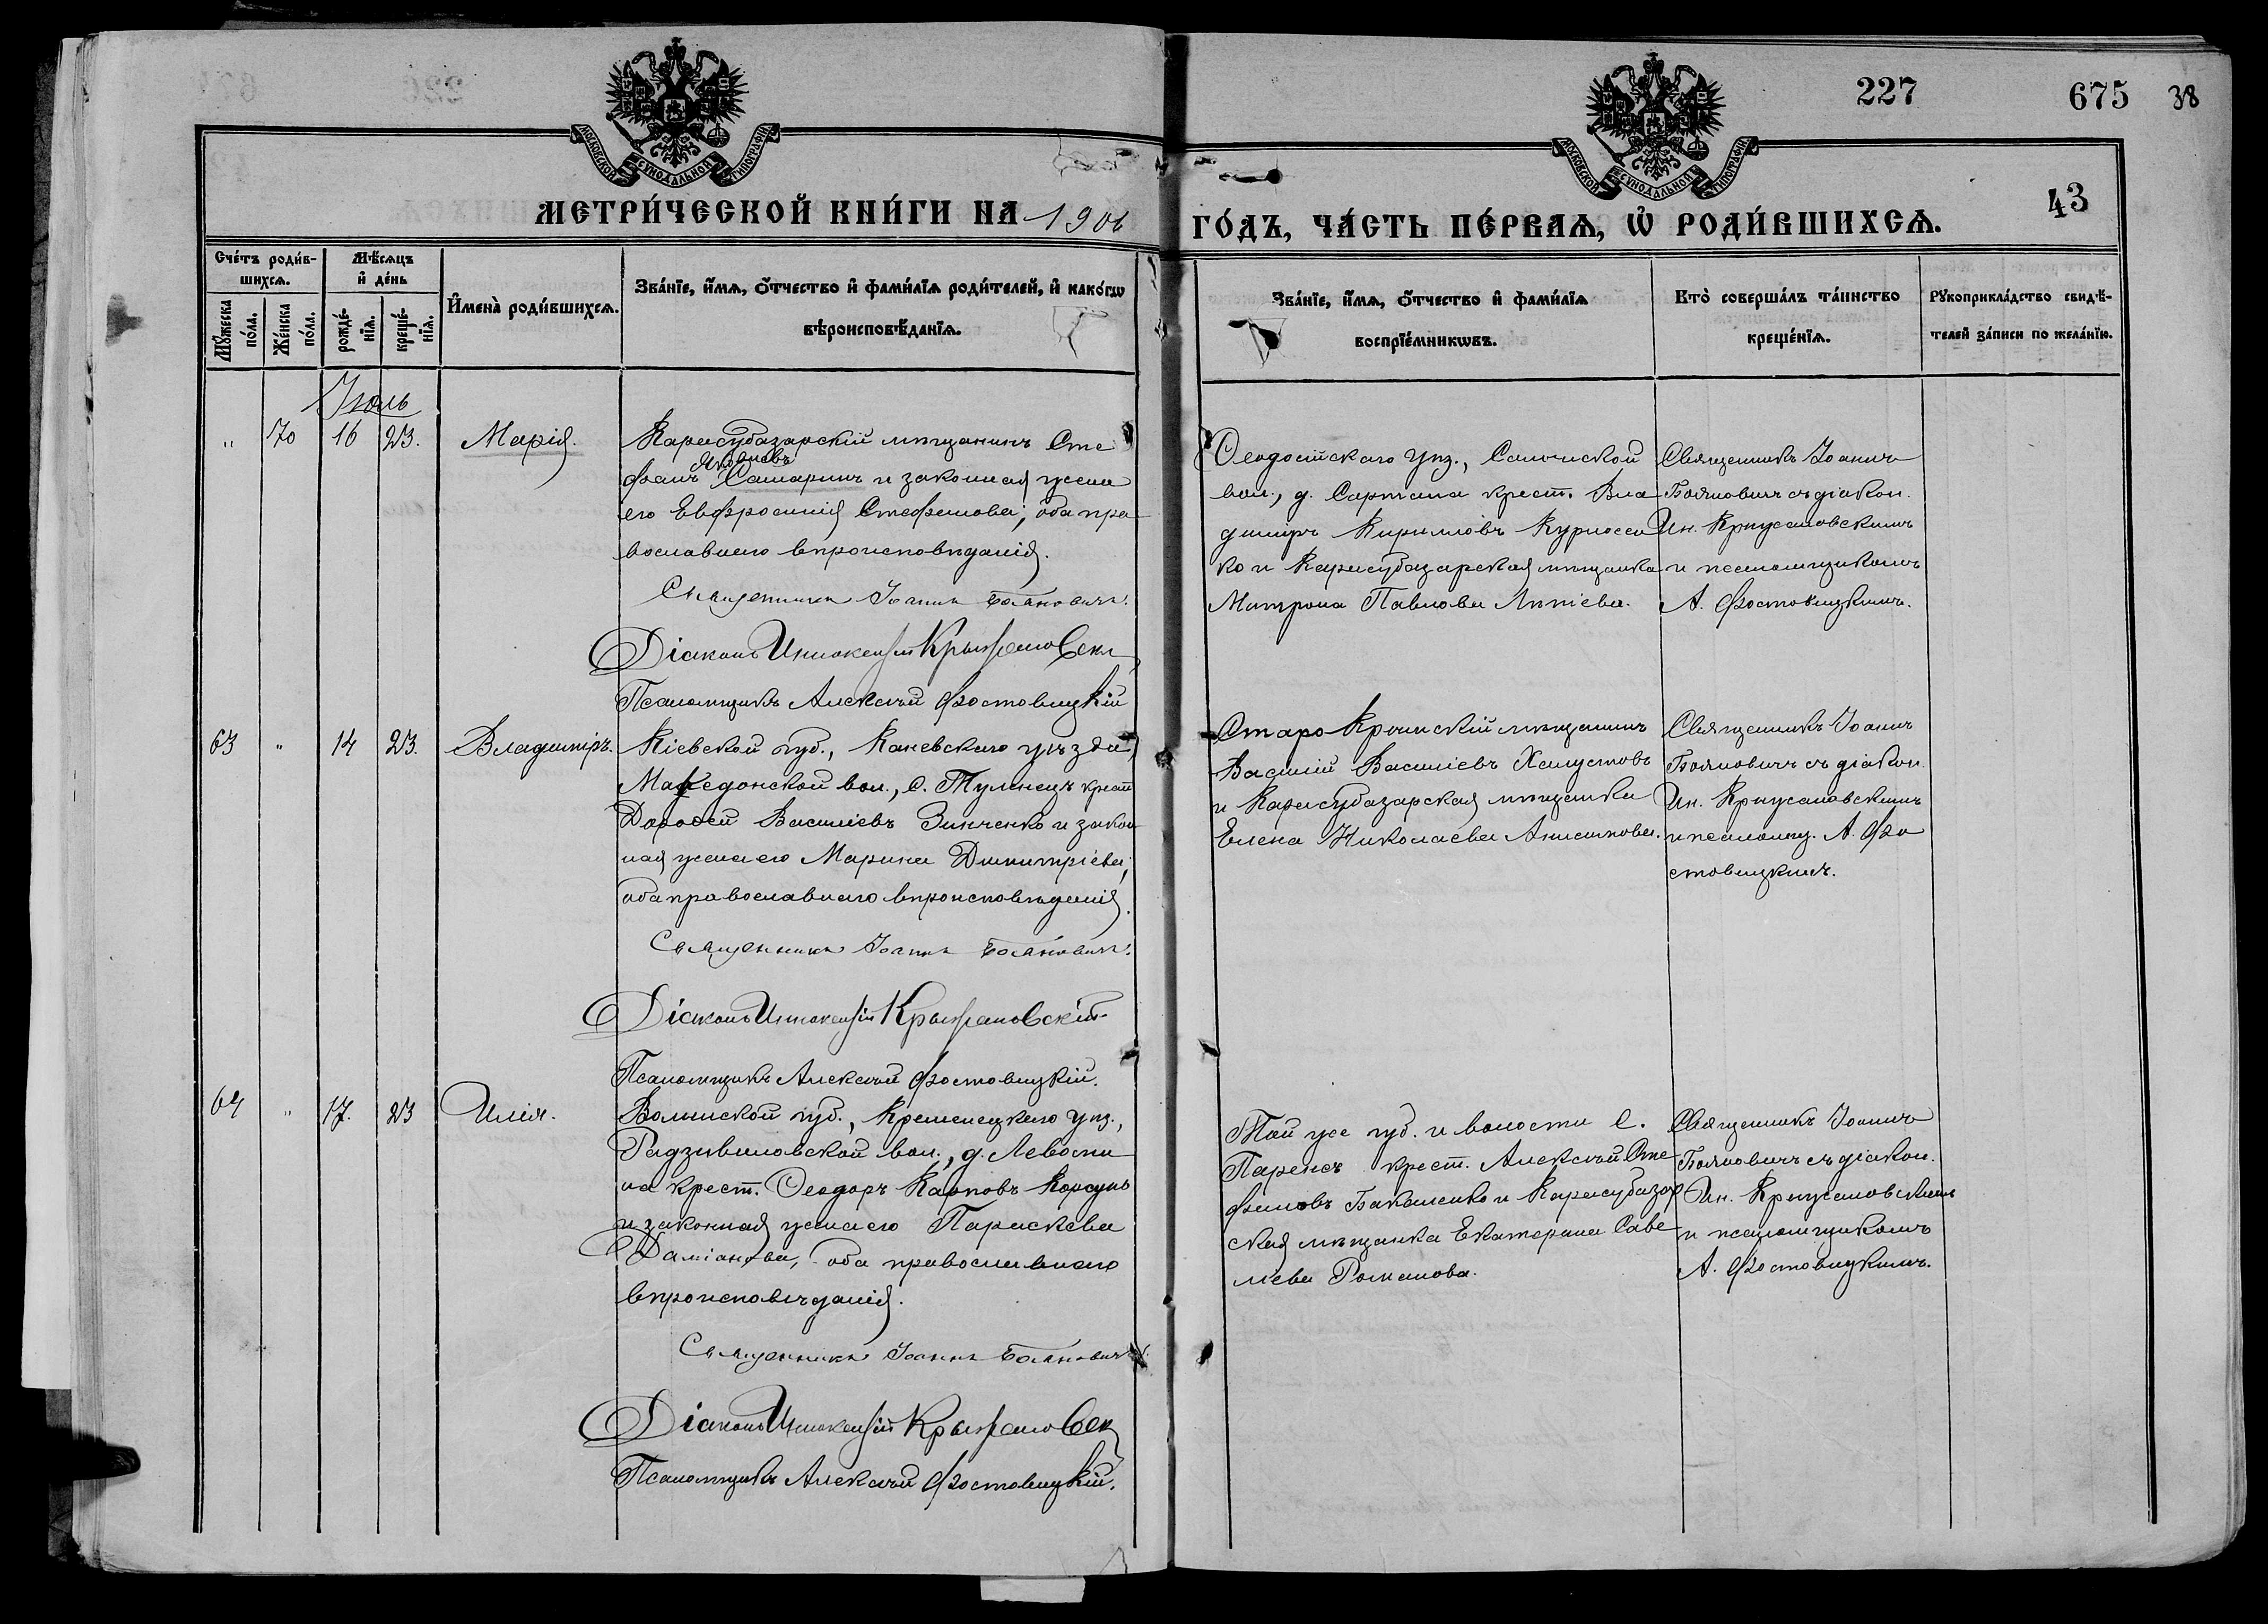 227 675 38
МОСКОВСКОЙ СУНОДАЛЬНОЙ ТИПОГРАФIИ
МОСКОВСКОЙ СУНОДАЛЬНОЙ ТИПОГРАФIИ
43
МЕТРИ́ЧЕСКОЙ КНИ́ГИ НА 1906
ГО́ДЪ, ЧА́СТЬ ПЕ́РВАѦ, Ѡ҆ РОДИ́ВШИХСѦ.
Сче́тъ роди́в-
шихсѧ.
Мꙋ́жеска по́ла.
Же́нска по́ла.
Мѣ́сѧцъ
и҆ де́нь
рожде́-нїѧ.
креще́-нїѧ.
И҆мена̀ роди́вшихсѧ.
Зва́нїе, и҆́мѧ, ѻ҆́тчество и҆ фами́лїѧ роди́телей, и҆ како́гѡ
вѣроисповѣ́данїѧ.
Зва́нїе, и҆́мѧ, ѻ҆́тчество и҆ фами́лїѧ
воспрїе́мникѡвъ.
Кто̀ соверша́лъ та́инство
креще́нїѧ.
Рꙋкоприкла́дство свидѣ́-
телей за́писи по жела́нїю.
Іюль
" 70 16 23. Марія.
Карасубазарскій мѣщанинъ Сте
Яковлевъ
фанъ Самаринъ и законная жена
его Евфросинія Стефанова; оба пра
вославнаго вѣроисповѣданія.
Священникъ Іоаннъ Бояновичъ.
Діаконъ Иннокентій Крыжановскій
Псаломщикъ Алексѣй Фостовицкій
Ѳеодосійскаго уѣз., Салынской
вол., д. Сартана крест. Вла
диміръ Кириловъ Курносен
ко и Карасубазарская мѣщанка
Матрона Павлова Липіева.
Священникъ Іоаннъ
Бояновичъ съ діакон.
Ин. Крыжановскимъ
и псаломщикомъ
А. Фостовицкимъ.
63 " 14 23. Владиміръ.
Кіевской губ., Каневскаго уѣзда,
Македонской вол., с. Тулинецъ крест
Дороѳей Василіевъ Зинченко и закон
ная жена его Марина Димитріева;
оба православнаго вѣроисповѣданія.
Священникъ Іоаннъ Бояновичъ.
Діаконъ Иннокентій Крыжановскій
Псаломщикъ Алексѣй Фостовицкій.
Старо-Крымскій мѣщанинъ
Василій Василіевъ Хапустовъ
и Карасубазарская мѣщанка
Елена Николаева Анисимова.
Священникъ Іоаннъ
Бояновичъ съ діакон.
Ин. Крыжановскимъ
и псаломщ. А. Фо
стовицкимъ.
64 " 17. 23 Илія.
Волынской губ., Кременецкаго уѣз.,
Радзивиловской вол., д. Левоти
на крест. Ѳеодоръ Карповъ Корсунъ
и законная жена его Параскева
Даміанова, оба православнаго
вѣроисповѣданія.
Священникъ Іоаннъ Бояновичъ.
Діаконъ Иннокентій Крыжановск
Псаломщикъ Алексѣй Фостовицкій.
Той же губ. и волости с.
крест. Алексѣй Сте
фановъ Бакаленко и Карасубазар
ская мѣщанка Екатерина Саве
ліева Романова.
Священникъ Іоаннъ
Бояновичъ съ діакон.
Ин. Крыжановскимъ
и псаломщикомъ
А. Фостовицкимъ.